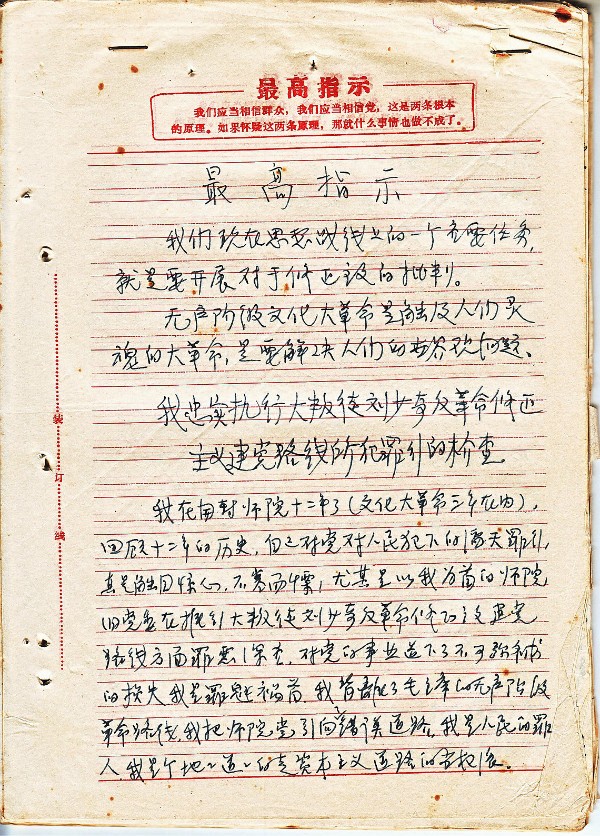 最高指示
我们应当相信群众，我们应当相信党，这是两条根本
的原理。如果怀疑这两条原理，那就什么事情也做不成了。
最高指示
我们现在思想战线上的一个重要任务，
就是要开展对于修正主义的批判。
无产阶级文化大革命是触及人们灵
魂的大革命，是要解决人们的世界观问题。
我忠实执行大叛徒刘少奇反革命修正
主义建党路线所犯罪行的检查
我在开封师院十二年了（文化大革命三年在内），
回顾十二年的历史，自己对党对人民犯下的滔天罪行，
真是触目惊心，不寒而慄，尤其是以我为首的师院
旧党委在推行大叛徒刘少奇反革命修正主义建党
路线方面罪恶，对党的事业造下了不可弥补
的损失，我是罪魁祸首，我背离了毛主席的无产阶级
革命路线，我把师院党引向错误道路，我是人民的罪
人，我是个地地道道的走资本主义道路的当权派。
装
订
线